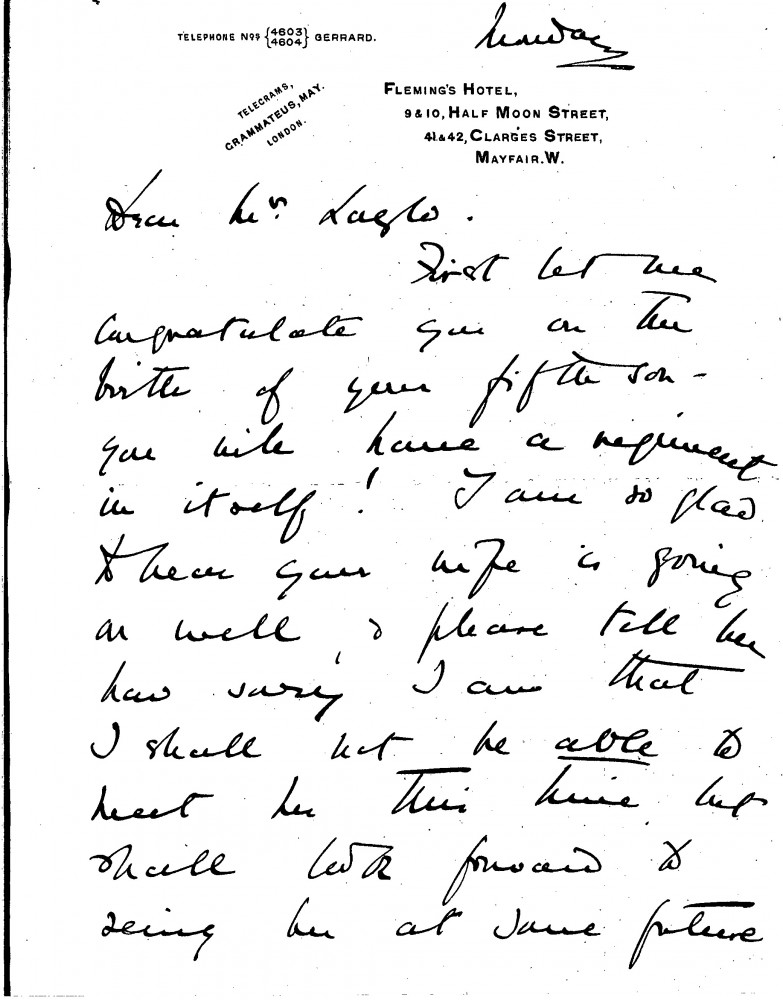 TELEPHONE Nos {4603 4604} GERRARD.
Monday
TELEGRAMS,
GRAMMATEUS, MAY.
LONDON.
FLEMING'S HOTEL,
9 & 10, HALF MOON STREET,
41 & 42, CLARGES STREET,
MAYFAIR. W.
Dear Mr. Laszlo.
First let me
congratulate you on the
birth of your fifth son -
you will have a regiment
in itself! I am so glad
to hear your wife is going
on well, & please tell her
how sorry I am that
I shall not be able to
meet her this time but
shall look forward to
seing her at some future